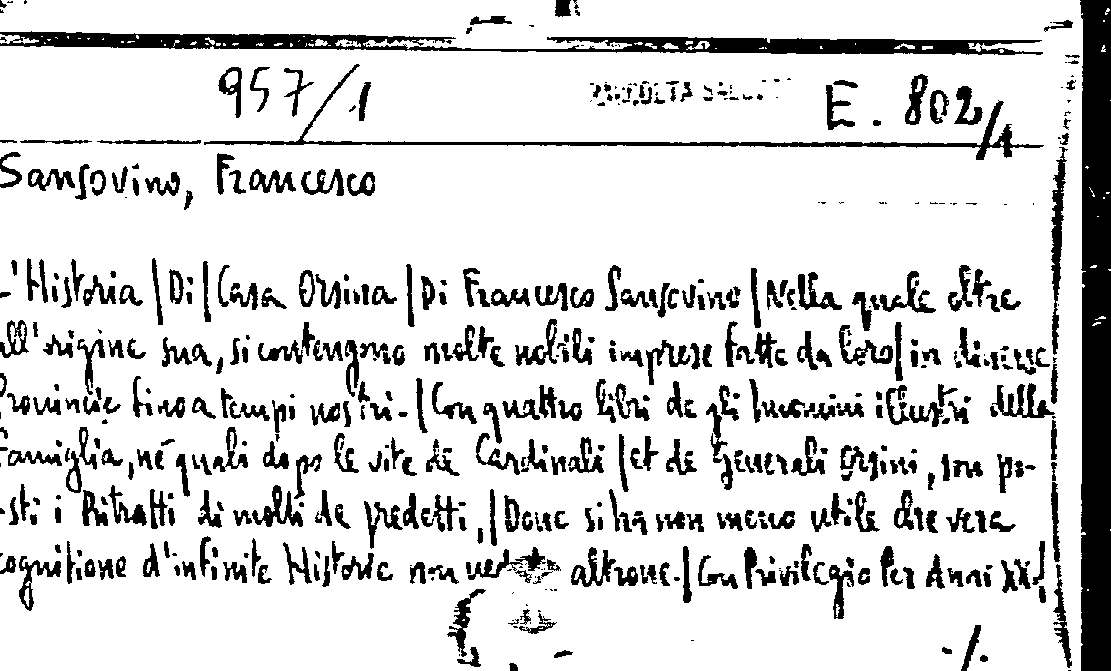 957/1 RACCOLTA E. 802/1
Sansovino, Francesco
L'Historia | Di | Casa Orsina | Di Francesco Sansovino | Nella quale oltre
all'origine sua, si contengono molte nobili imprese fatte da loro | in diverse
Provincie fino a tempi nostri. | Con quattro libri de gli huomini illustri della
famiglia, né quali dopo le vite de Cardinali | et de Generali Orsini, son po-
-sti i Ritratti di molti de predetti, | Dove si ha non meno utile che vera
cognitione d'infinite Historie non altroue. | Con Privilegio Per Anni XX. |
./.